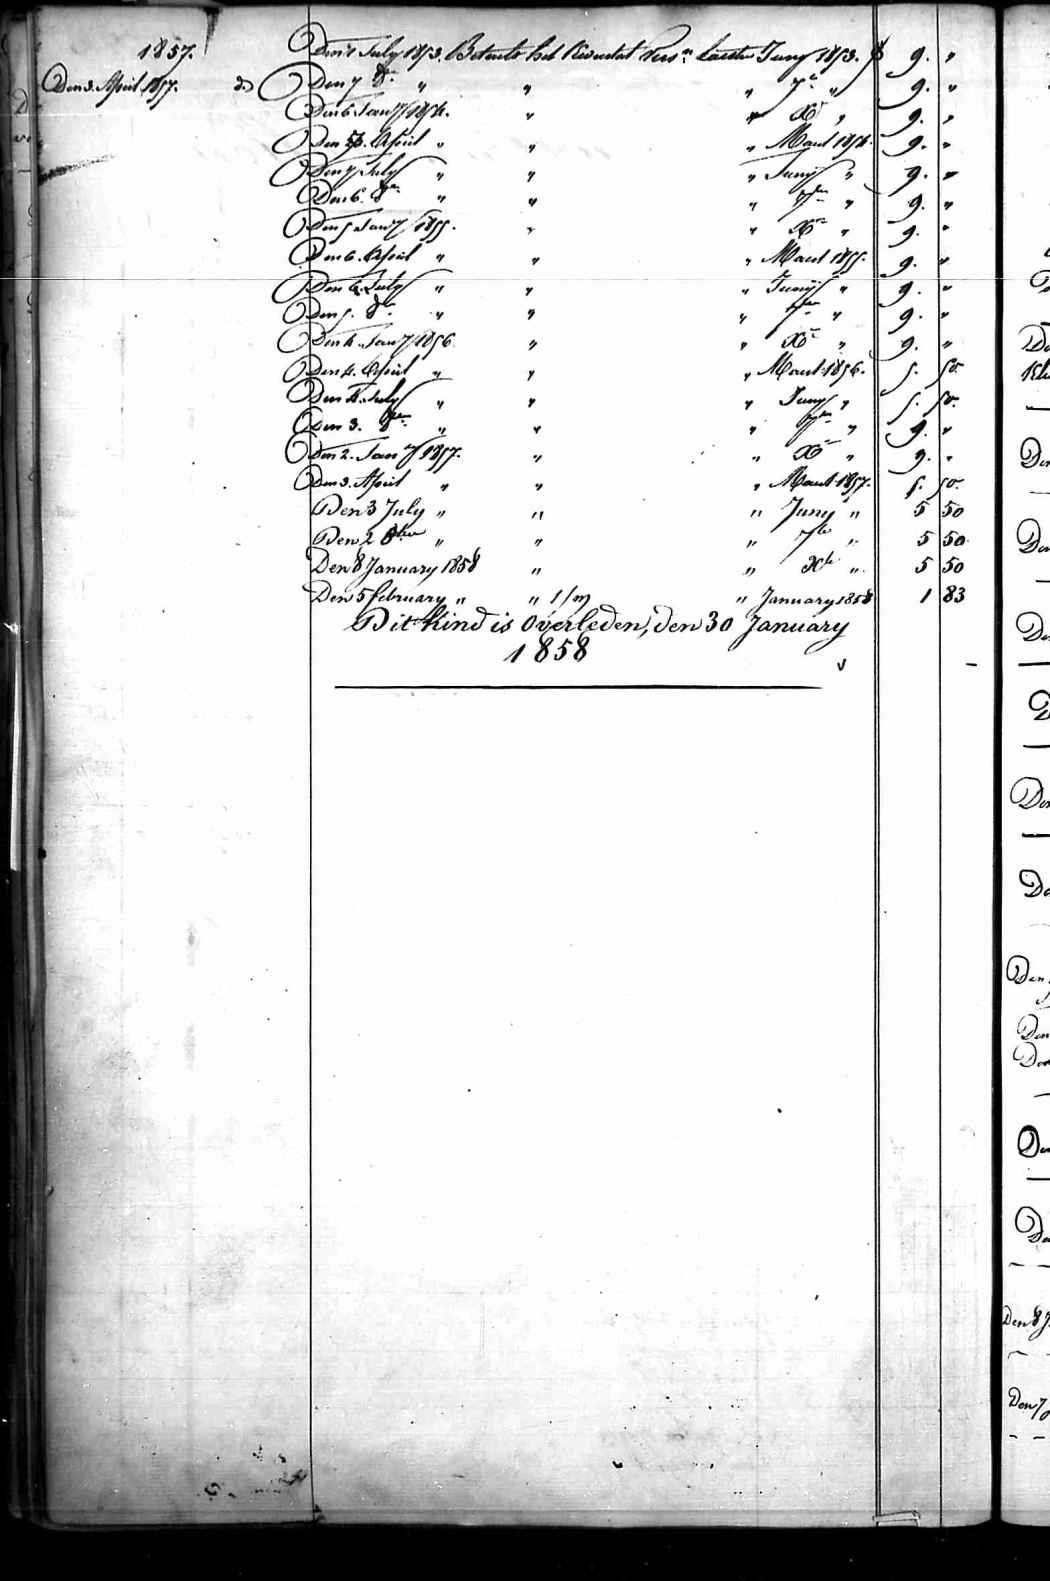 1857.
Den 3. April 1857. d.
Den 1 July 1853. Betaald het Kwartal Pens.n Laatste Juny 1853. f 9. "
Den 7 8.r " " " 7.r " 9. "
Den 6. Jan.y 1854. " " X.r " 9. "
Den 5. April " " " Maart 1854. 9. "
Den 7 July " " " Juny " 9. "
Den 6. 8.r " " " 7.r " 9. "
Den 5 Jan.y 1855. " " X.r " 9. "
Den 6. April " " " Maart 1855. 9. "
Den 6. July " " " Juny " 9. "
Den 5. 8.r " " " 7.r " 9. "
Den 4. Jan.y 1856. " " X.r " 9. "
Den 4. April " " " Maart 1856. 5. 50.
Den 4. July " " " Juny " 5. 50.
Den 3. 8.r " " " 7.r " 9. "
Den 2. Jan.y 1857. " " X.r " 9. "
Den 3. April " " " Maart 1857. 5. 50.
Den 3 July " " " Juny " 5 50
Den 2 8ber " " " 7br " 5 50
Den 8 January 1858 " " Xbr " 5 50
Den 5 february " " 1/m " January 1858 1 83
Dit Kind is Overleden, den 30 January
1858